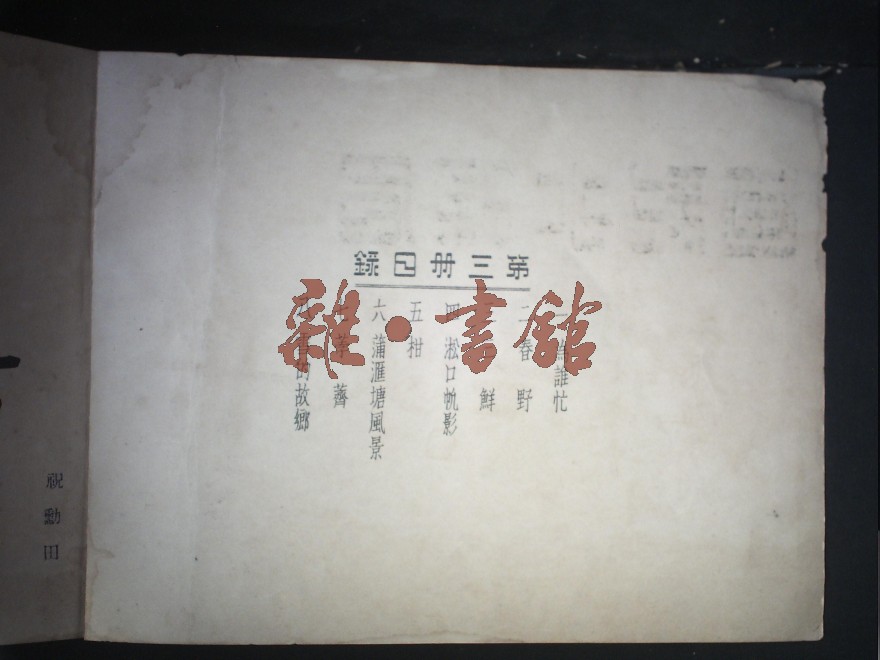 第三冊目錄
一 誰忙
二 春野
鮮
四 淞口帆影
五 柑
六 蒲滙塘風景
薺
的故鄉
雜·書館
祝勳田